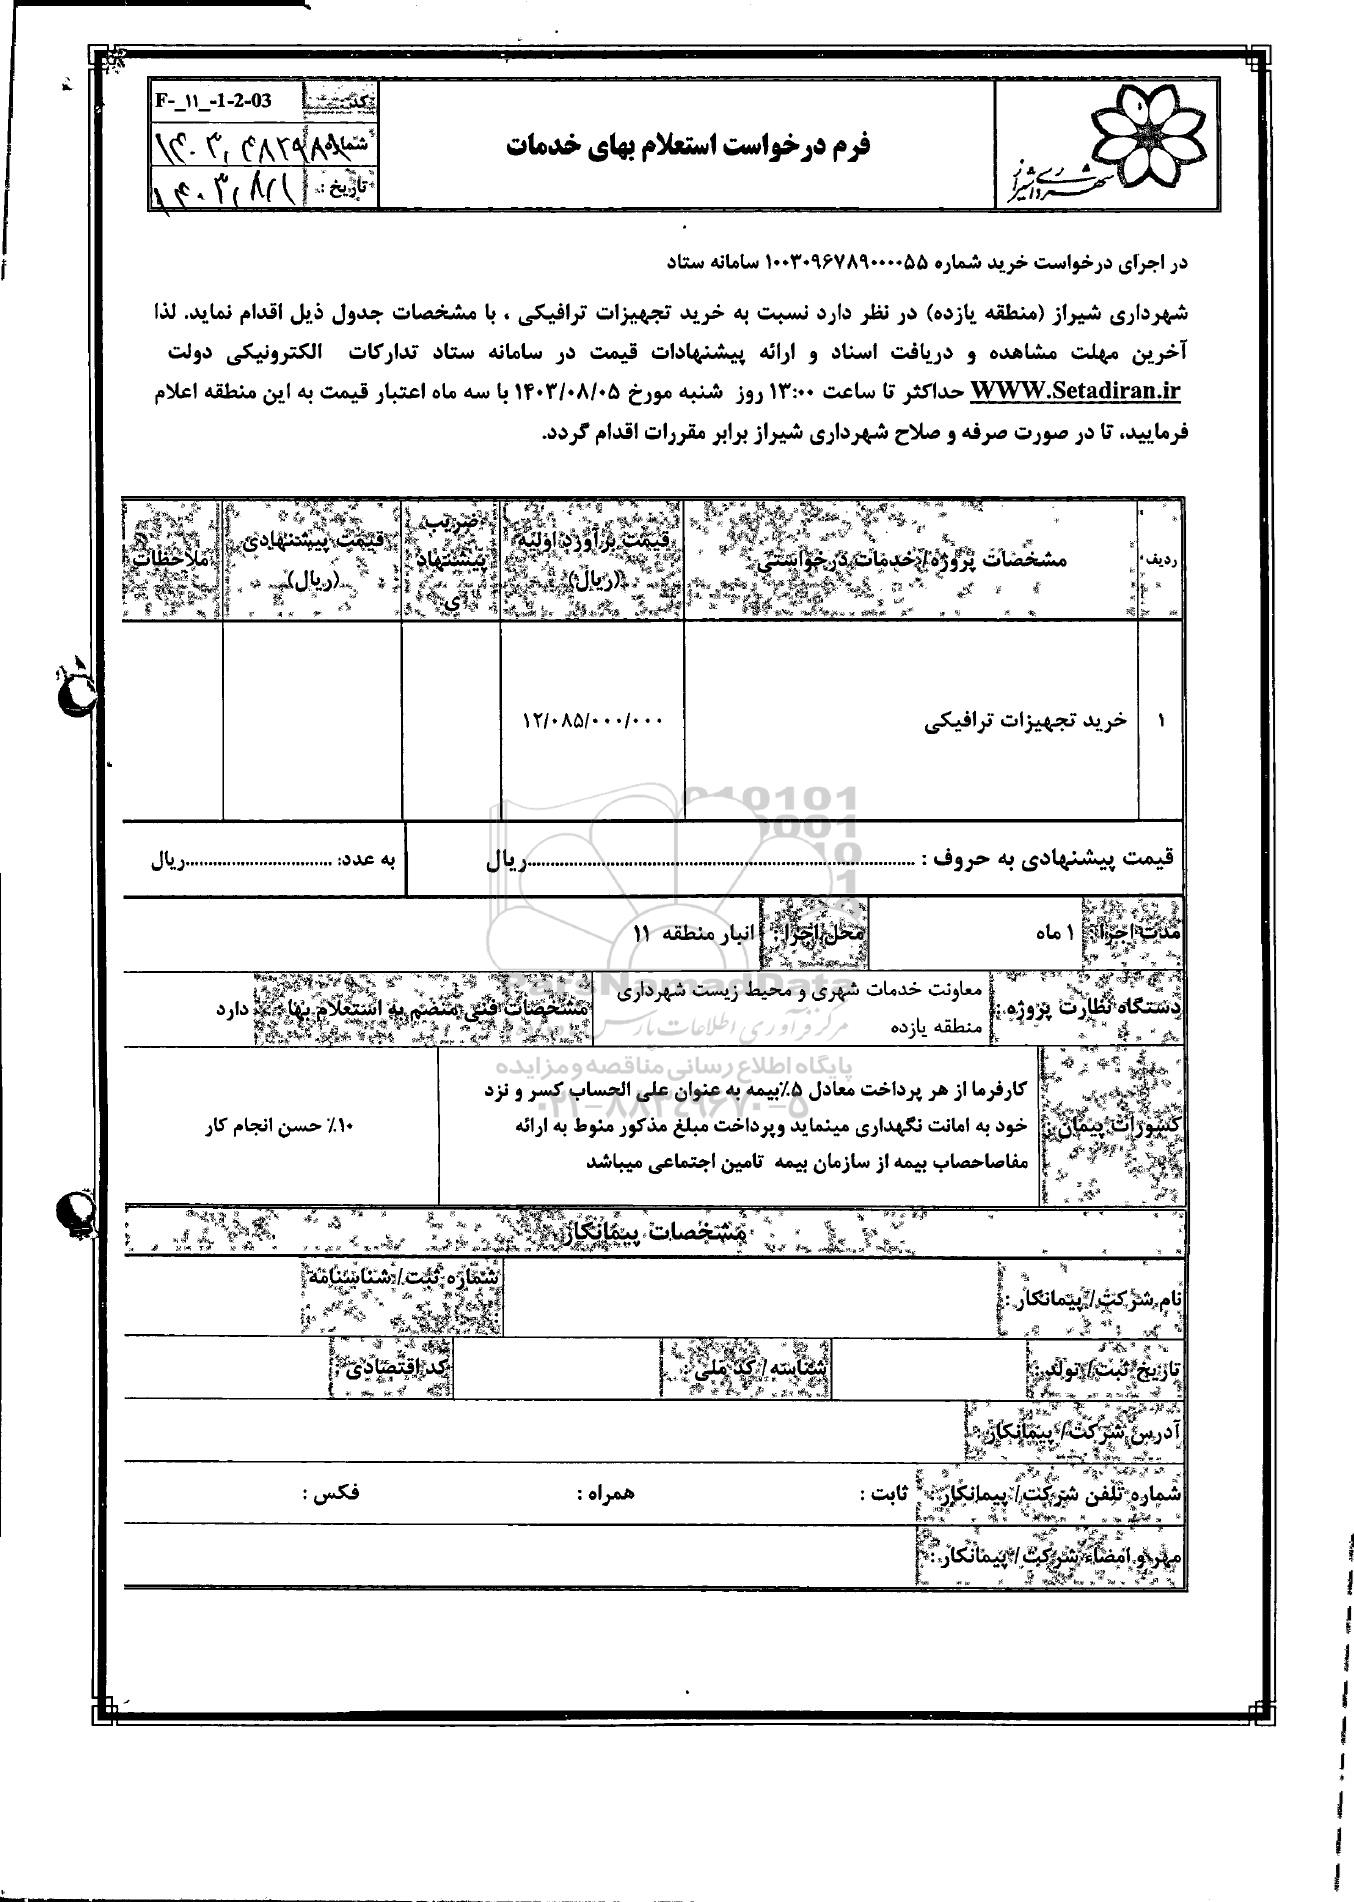 شهرداری شیراز
فرم درخواست استعلام بهای خدمات
کد: F-_۱۱_-1-2-03
شماره
تاریخ : ۱۴۰۳/۸/۱
در اجرای درخواست خرید شماره ۱۰۰۳۰۹۶۷۸۹۰۰۰۰۵۵ سامانه ستاد
شهرداری شیراز (منطقه یازده) در نظر دارد نسبت به خرید تجهیزات ترافیکی ، با مشخصات جدول ذیل اقدام نماید. لذا
آخرین مهلت مشاهده و دریافت اسناد و ارائه پیشنهادات قیمت در سامانه ستاد تدارکات الکترونیکی دولت
WWW.Setadiran.ir حداکثر تا ساعت ۱۳:۰۰ روز شنبه مورخ ۱۴۰۳/۰۸/۰۵ با سه ماه اعتبار قیمت به این منطقه اعلام
فرمایید، تا در صورت صرفه و صلاح شهرداری شیراز برابر مقررات اقدام گردد.
ردیف
مشخصات پروژه/خدمات درخواستی
قیمت برآورد اولیه
(ریال)
ضریب
پیشنهاد
ی
قیمت پیشنهادی
(ریال)
ملاحظات
۱
خرید تجهیزات ترافیکی
۱۲/۰۸۵/۰۰۰/۰۰۰
قیمت پیشنهادی به حروف : ........................................ریال
به عدد: ................................ریال
مدت اجرا : ۱ ماه
محل اجرا : انبار منطقه ۱۱
دستگاه نظارت پروژه :
معاونت خدمات شهری و محیط زیست شهرداری
منطقه یازده
مشخصات فنی منضم به استعلام بها : دارد
کسورات پیمان :
کارفرما از هر پرداخت معادل ۵٪بیمه به عنوان علی الحساب کسر و نزد
خود به امانت نگهداری مینماید وپرداخت مبلغ مذکور منوط به ارائه
مفاصاحصاب بیمه از سازمان بیمه تامین اجتماعی میباشد
۱۰٪ حسن انجام کار
مشخصات پیمانکار
نام شرکت/ پیمانکار :
شماره ثبت / شناسنامه
تاریخ ثبت/ تولد :
شناسه/ کد ملی :
کد اقتصادی :
آدرس شرکت/ پیمانکار :
شماره تلفن شرکت/ پیمانکار ثابت :
همراه :
فکس :
مهر و امضاء شرکت/ پیمانکار :
ParsNamadData
مرکز فرآوری اطلاعات پارس
پایگاه اطلاع رسانی مناقصه و مزایده
۰۲۱-۸۸۳۴۹۶۷۰-۵